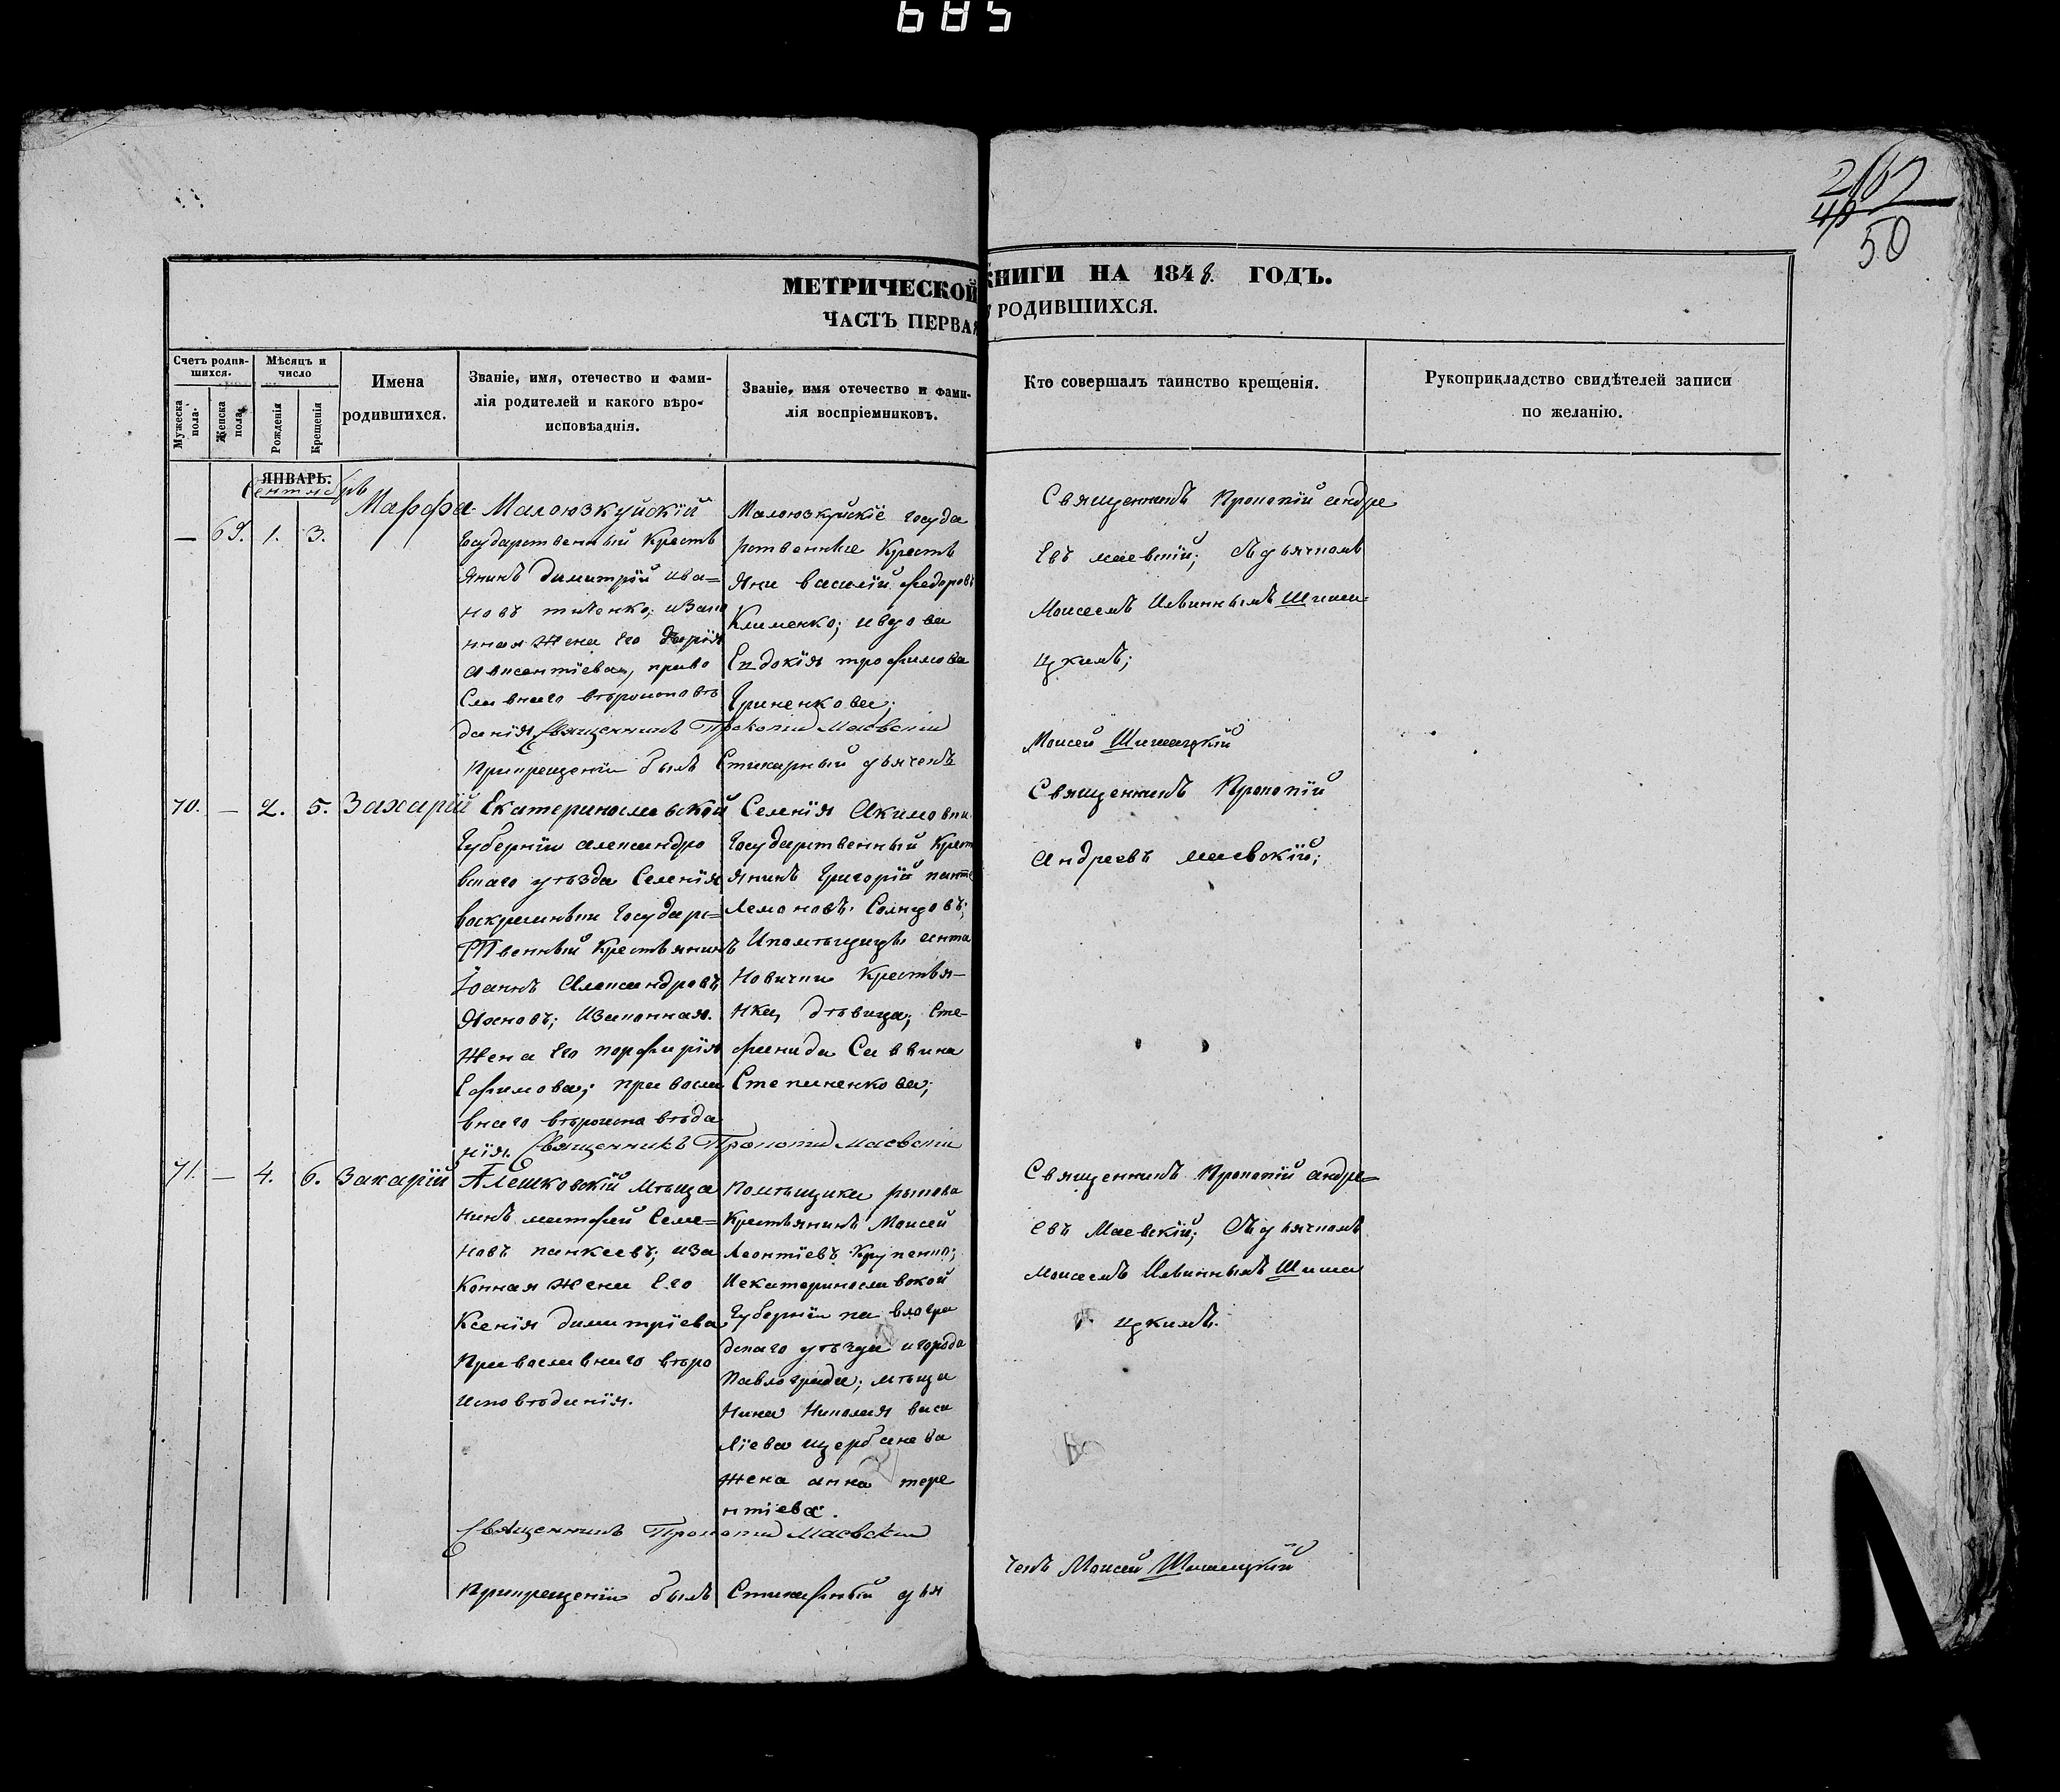 685
50
МЕТРИЧЕСКОЙ КНИГИ НА 1848. ГОДЪ.
ЧАСТЬ ПЕРВАЯ РОДИВШИХСЯ.
Счетъ родив-
шихся.
Мужеска пола.
Женска пола.
Мѣсяцъ и
число
Рожденія
Крещенія
Имена
родившихся.
Званіе, имя, отечество и фами-
лія родителей и какого вѣро-
исповѣаднія.
Званіе, имя отечество и фами-
лія воспріемниковъ.
Кто совершалъ таинство крещенія.
Рукоприкладство свидѣтелей записи
по желанію.
ЯНВАРЬ.
Сентябрь
— 69. 1. 3.
Марфа
Малоюзкуйскій
Государственный Кресть
янинъ димитрій ива=
новъ; изако
нная жена Его дарія
Авксентіева, право
Славнаго вѣроисповѣ
данія Священникъ Прокопій Маевскій
Прикрещеніи былъ Стихарный дьячекъ
Малоюзкуйскіе госуда
рственные Кресть
яни василій федоровъ
Клименко; ивдова
Евдокія трофимова
Гриненкова;
Священникъ Прокопій андре
Евъ маевскій; Съдьячкомъ
Моисеемъ Ильинымъ Шиша
цкимъ;
Моисей Шишацкій
70. — 2. 5. Захарій
Екатеринославской
Губерніи александро
вскаго уѣзда Селенія
Государ=
ственный Крестьянинъ
Іоаннъ Александровъ
Яхновъ; Изаконная.
Жена Его порфирія
Ефимова; правосла
внаго вѣроисповѣда
нія. Священникъ Прокопій Маевскій
Селенія Акимовки
Государственный Крест
янинъ Григорій пантe
лемоновъ Солнцовъ;
Ипомѣщицы анта
новички Крестья-
нка, дѣвица, Сте-
фанида Саввина
Степаненкова;
Священникъ Прокопій
Андреевъ маевскій;
71. — 4. 6. Захарій
Алешковскій Мѣща
нинъ матфей Семе=
новъ панкеевъ; иза
Конная жена Его
Ксенія димитріева
Православнаго вѣро
исповѣданія.
Священникъ Прокопій Маевскій
Прикрещеніи былъ Стихарный дья
помѣщика
Крестьянинъ Моисей
Леонтіевъ
Иекатеринославской
Губерніи павлогра
дскаго уѣзда игорода
Павлограда; мѣща
нина Николая васи
ліева щербанева
Жена анна тере
нтіева.
Священникъ Прокопій андре=
евъ Маевскій; Съдьячкомъ
Моисеемъ Ильинымъ Шиша
цкимъ.
чекъ Моисей Шишацкій